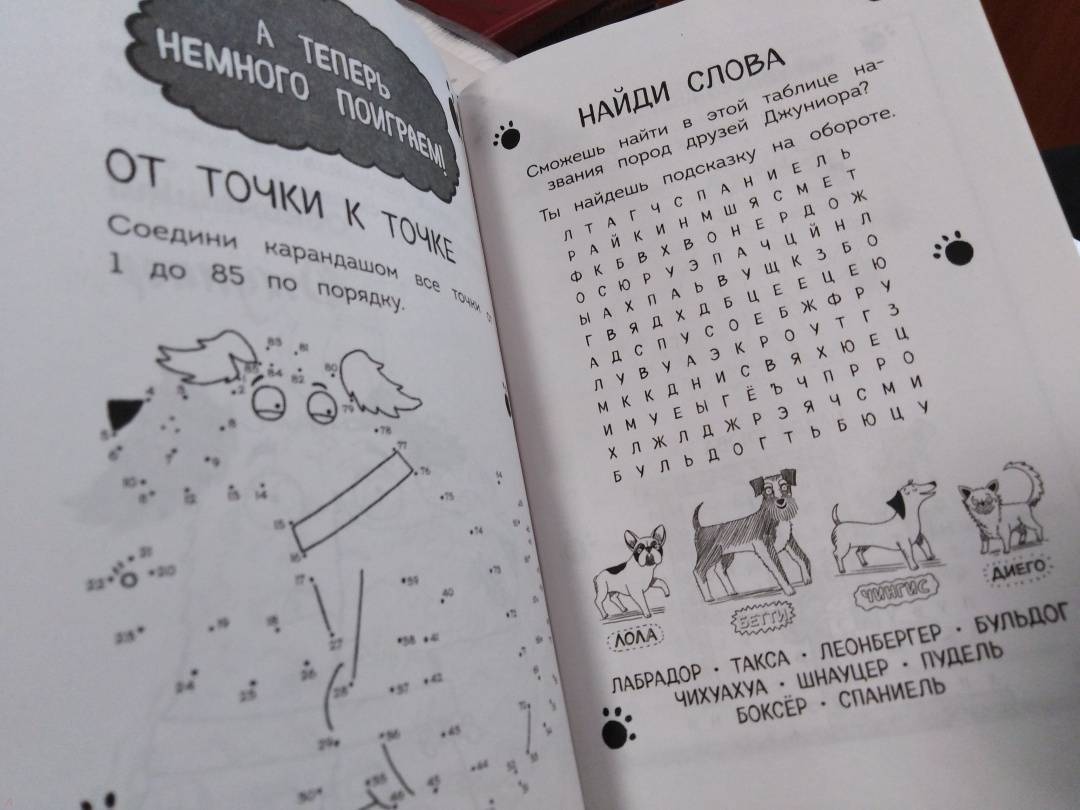 А ТЕПЕРЬ
НЕМНОГО ПОИГРАЕМ!
ОТ ТОЧКИ К ТОЧКЕ
Соедини карандашом все точки о
1 до 85 по порядку.
83 81
85 84 82 80
4 3 2
79
5 8 78
6 7 9 77
76
10 12 13 14 75
15
16 74
21
22 20 17 59 73
40
23 19 18 27 58 41
24 25 26 28 57 42
29 56 43
30 55 44
46
НАЙДИ СЛОВА
Сможешь найти в этой таблице на-
звания пород друзей Джуниора?
Ты найдешь подсказку на обороте.
Л Т А Г Ч С П А Н И Е Л Ь
Р А Й К И Н М Ш Я С М Е Т
Ф К Б В Х В О Н Е Р Д О Ж
О С Ю Р У Э П А Ч Ц Й Н Л
Ы А Х П А Ь В У Щ К З Б О
Г В Я Д Х Д Б Ц Е Е Ц Е Ю
А Д С П У С О Е Б Ж Ф Р У
Л У В У А Э К Р О У Т Г З
М К К Д Н И С В Я Х Ю Е Ц
И М У Е Ы Г Ё Ъ Ч П Р Р О
Х Л Ж Л Д Ж Р Э Я Ч С М И
Б У Л Ь Д О Г Т Ь Б Ю Ц У
ЛОЛА
БЕТТИ
ЧИНГИС
ДИЕГО
ЛАБРАДОР · ТАКСА · ЛЕОНБЕРГЕР · БУЛЬДОГ
ЧИХУАХУА · ШНАУЦЕР · ПУДЕЛЬ
БОКСЁР · СПАНИЕЛЬ